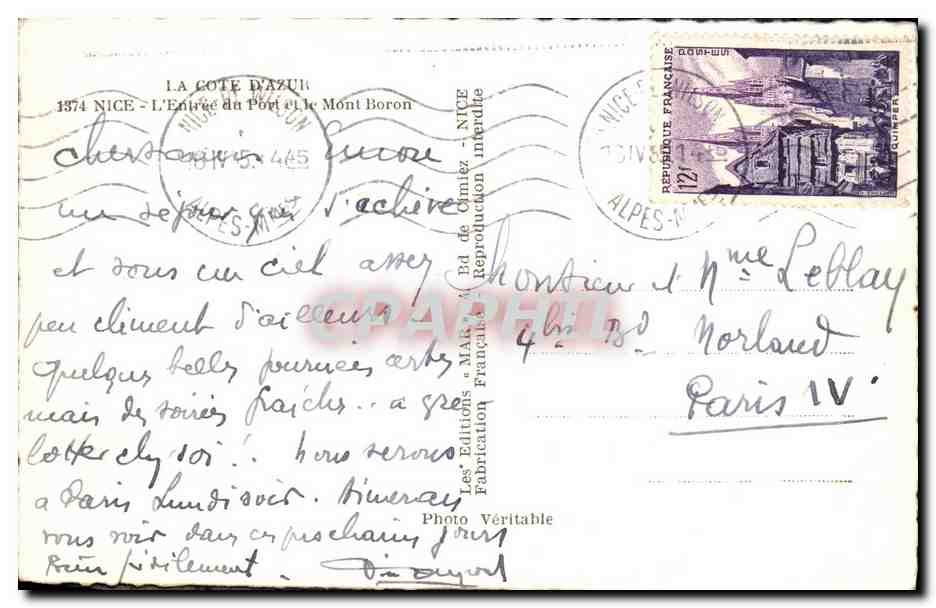 LA COTE D'AZUR
1374 NICE - L'Entrée du Port et le Mont Boron
NICE WILSON
ALPES-Mmes
encore
un séjour qui s'achève
et sous un ciel assez
peu clément d'ailleurs -
Quelques belles journées certes
mais des soirées fraîches.. a gre-
lotter chez soi! Nous serons
a Paris Lundi soir. Aimerais
vous voir dans ces prochains jours
Bien
Photo Véritable
Les Editions « MAR » Bd de Cimiez - NICE
Fabrication Française - Reproduction interdite
CPAPHIL
RÉPUBLIQUE FRANÇAISE
POSTES
12F
QUIMPER
NICE WILSON
ALPES-Mmes
Monsieur et Mme Leblay
4 bis Bd Morland
Paris IV